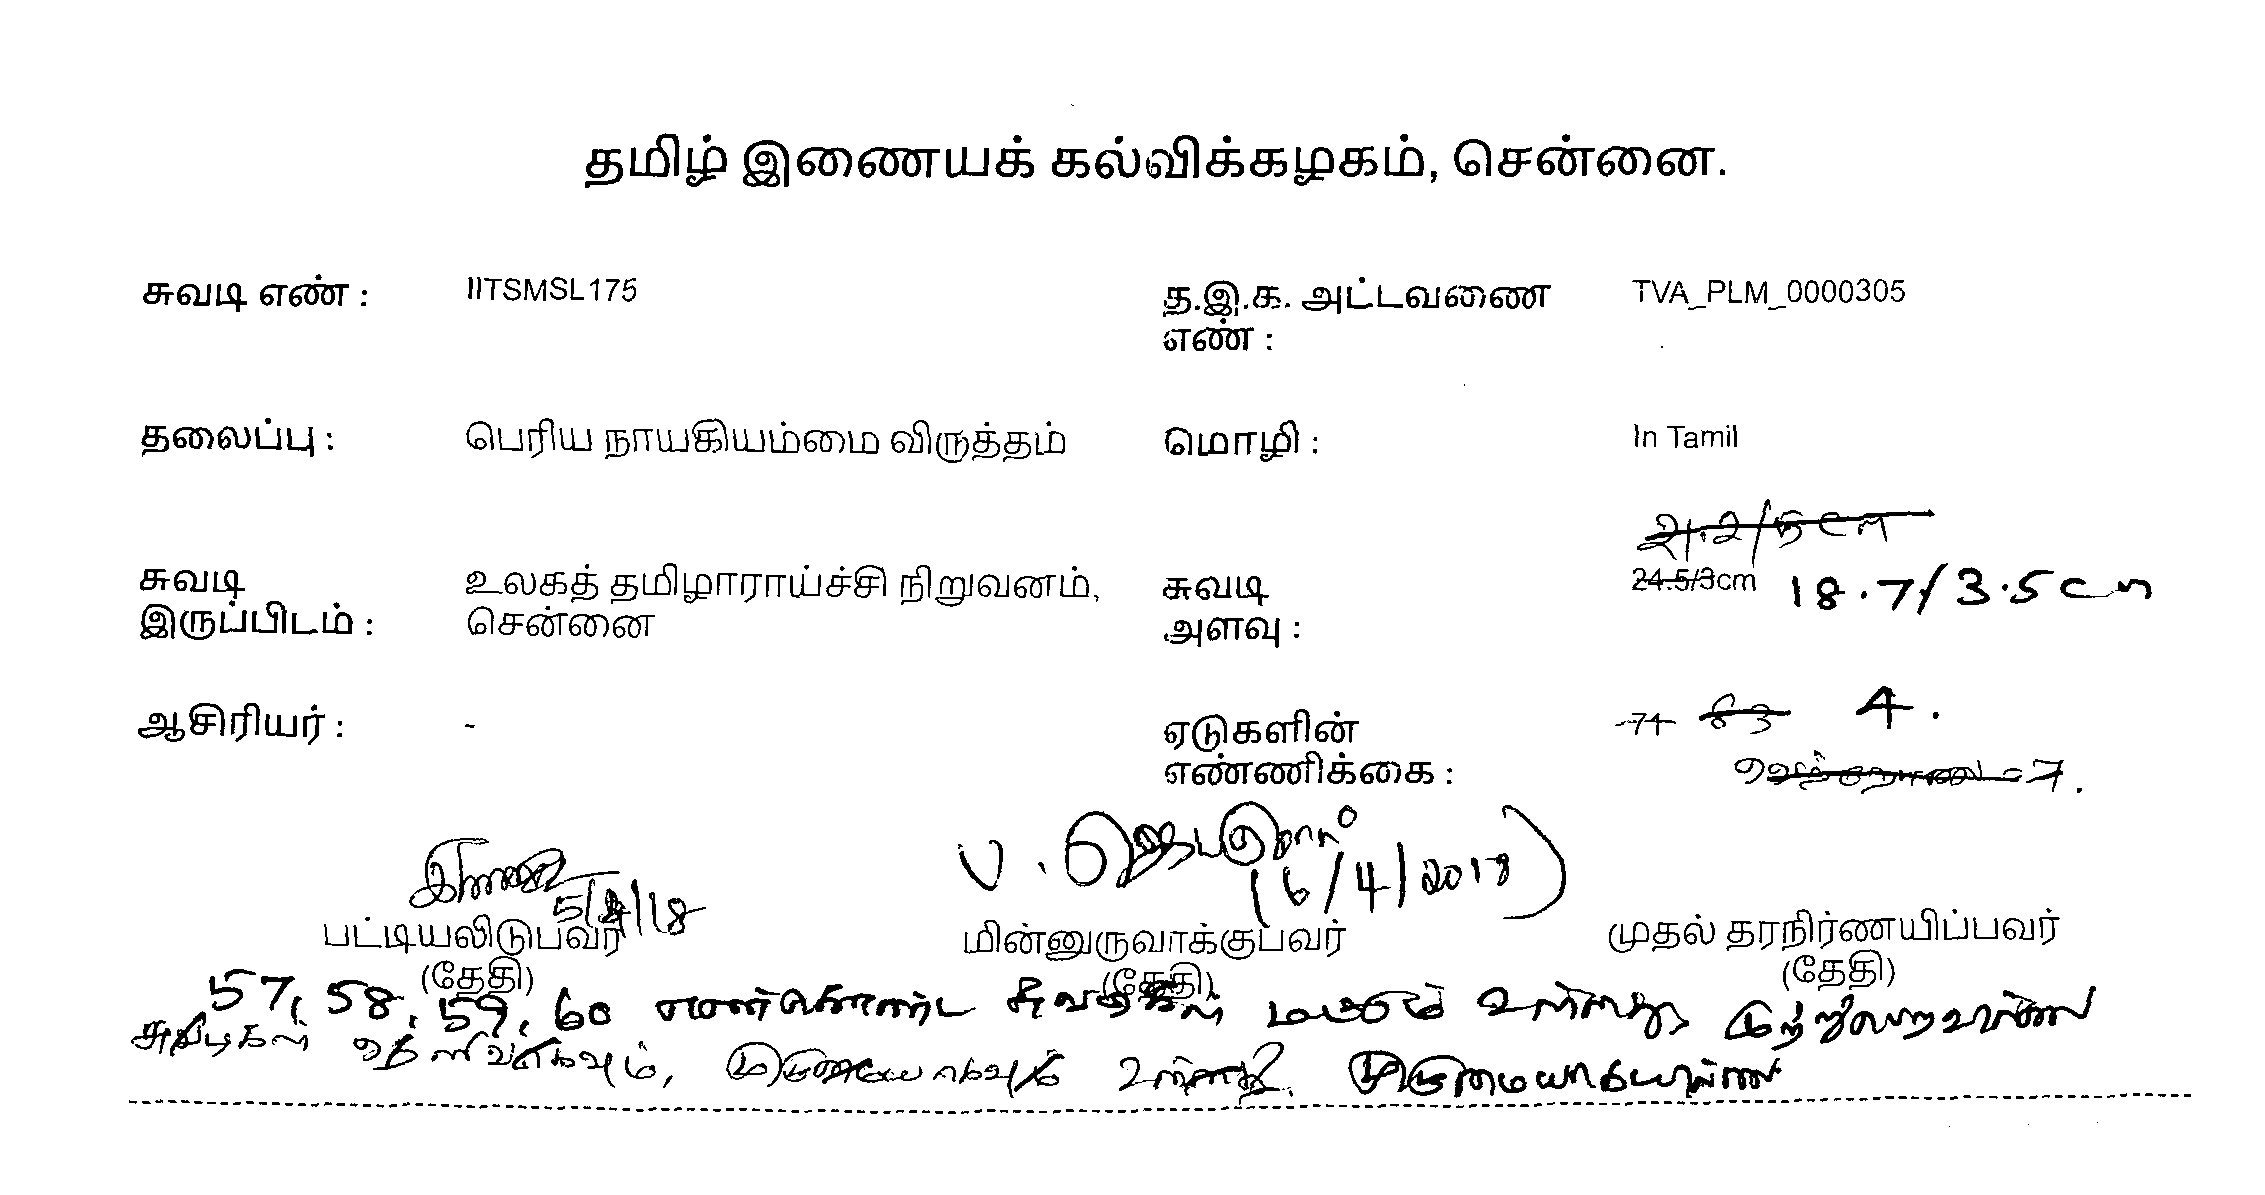 தமிழ் இணையக் கல்விக்கழகம், சென்னை.
சுவடி எண் : IITSMSL175 த.இ.க. அட்டவணை எண் : TVA_PLM_0000305
தலைப்பு : பெரிய நாயகியம்மை விருத்தம் மொழி : In Tamil
21.2/5 cm
சுவடி இருப்பிடம் : உலகத் தமிழாராய்ச்சி நிறுவனம், சென்னை சுவடி அளவு : 24.5/3cm 18.7/3.5 cm
ஆசிரியர் : - ஏடுகளின் எண்ணிக்கை : 74 63 4.
ப . ஜெயகுமார்
5/4/18 (6/4/2018)
பட்டியலிடுபவர் (தேதி) மின்னுருவாக்குபவர் (தேதி) முதல் தரநிர்ணயிப்பவர் (தேதி)
57, 58, 59, 60 எண்கொண்ட சுவடிகள் மட்டும் உள்ளது
சுவடிகள் தெளிவாகவும், முழுமையாகவும் உள்ளது.